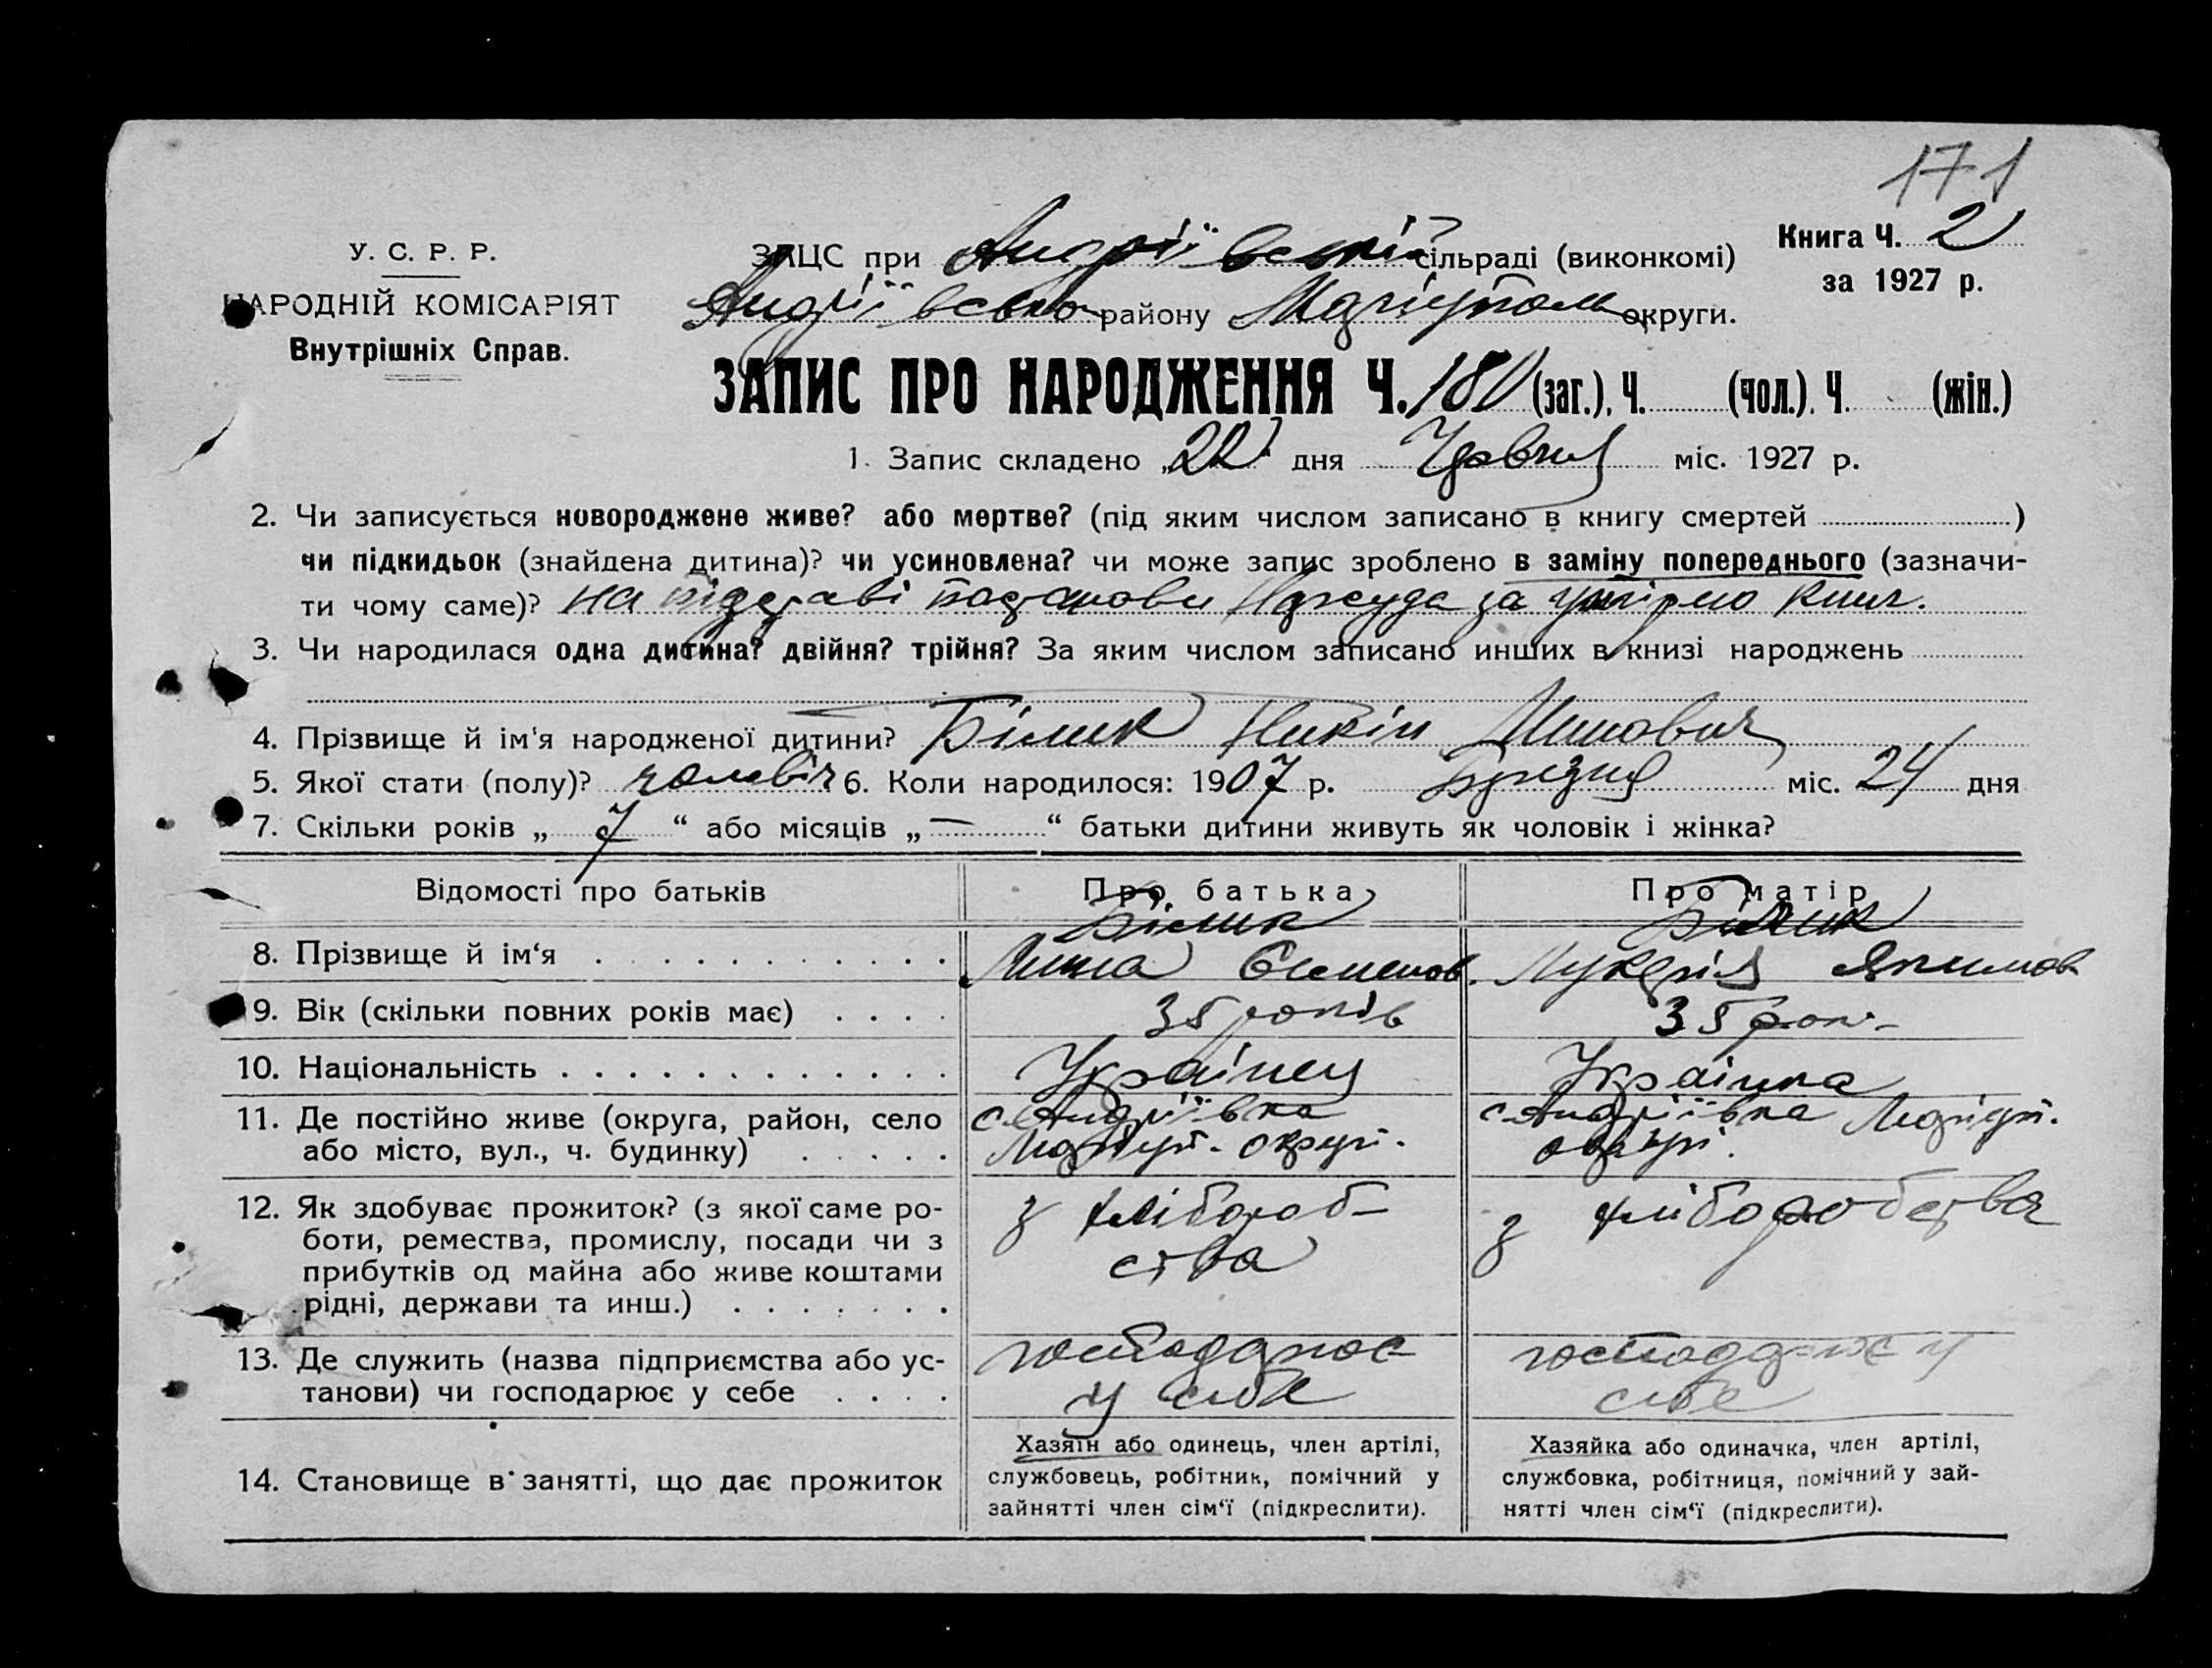 171
У. С. Р. Р.
ЗАЦС при Андріївській сільраді (виконкомі)
Книга Ч. 2
за 1927 р.
НАРОДНІЙ КОМІСАРІЯТ
Внутрішніх Справ.
Андріївсько району Маріупольс округи.
ЗАПИС ПРО НАРОДЖЕННЯ Ч. 180 (заг.), Ч. (чол.). Ч. (жін.)
1. Запис складено „22“ дня міс. 1927 р.
2. Чи записується новороджене живе? або мертве? (під яким числом записано в книгу смертей )
чи підкидьок (знайдена дитина)? чи усиновлена? чи може запис зроблено в заміну попереднього (зазначи-
ти чому саме)? на підставі постанови Нарсуда за книг.
3. Чи народилася одна дитина? двійня? трійня? За яким числом записано инших в книзі народжень
4. Прізвище й ім'я народженої дитини? Білик Минович
5. Якої стати (полу)? чоловіч 6. Коли народилося: 1907 р. Березня міс. 24 дня
7. Скільки років „ 7 “ або місяців „ — “ батьки дитини живуть як чоловік і жінка?
Відомості про батьків Про батька Про матір
8. Прізвище й ім‘я Білик Мина Семенов. Білик Лукерія Якимов
9. Вік (скільки повних років має) 35 років 35 рок
10. Національність Українец Українка
11. Де постійно живе (округа, район, село с. Андріївка с. Андріївка Маріуп.
або місто, вул., ч. будинку) Маріуп. округ. округи.
12. Як здобуває прожиток? (з якої саме ро- з хлібороб- з хліборобства
боти, ремества, промислу, посади чи з ства
прибутків од майна або живе коштами
рідні, держави та инш.)
13. Де служить (назва підприємства або ус- господарює господарює у
танови) чи господарює у себе у себе себе
14. Становище в занятті, що дає прожиток
Хазяїн або одинець, член артілі,
службовець, робітник, помічний у
зайнятті член сім‘ї (підкреслити).
Хазяйка або одиначка, член артілі,
службовка, робітниця, помічний у зай-
нятті член сім‘ї (підкреслити).